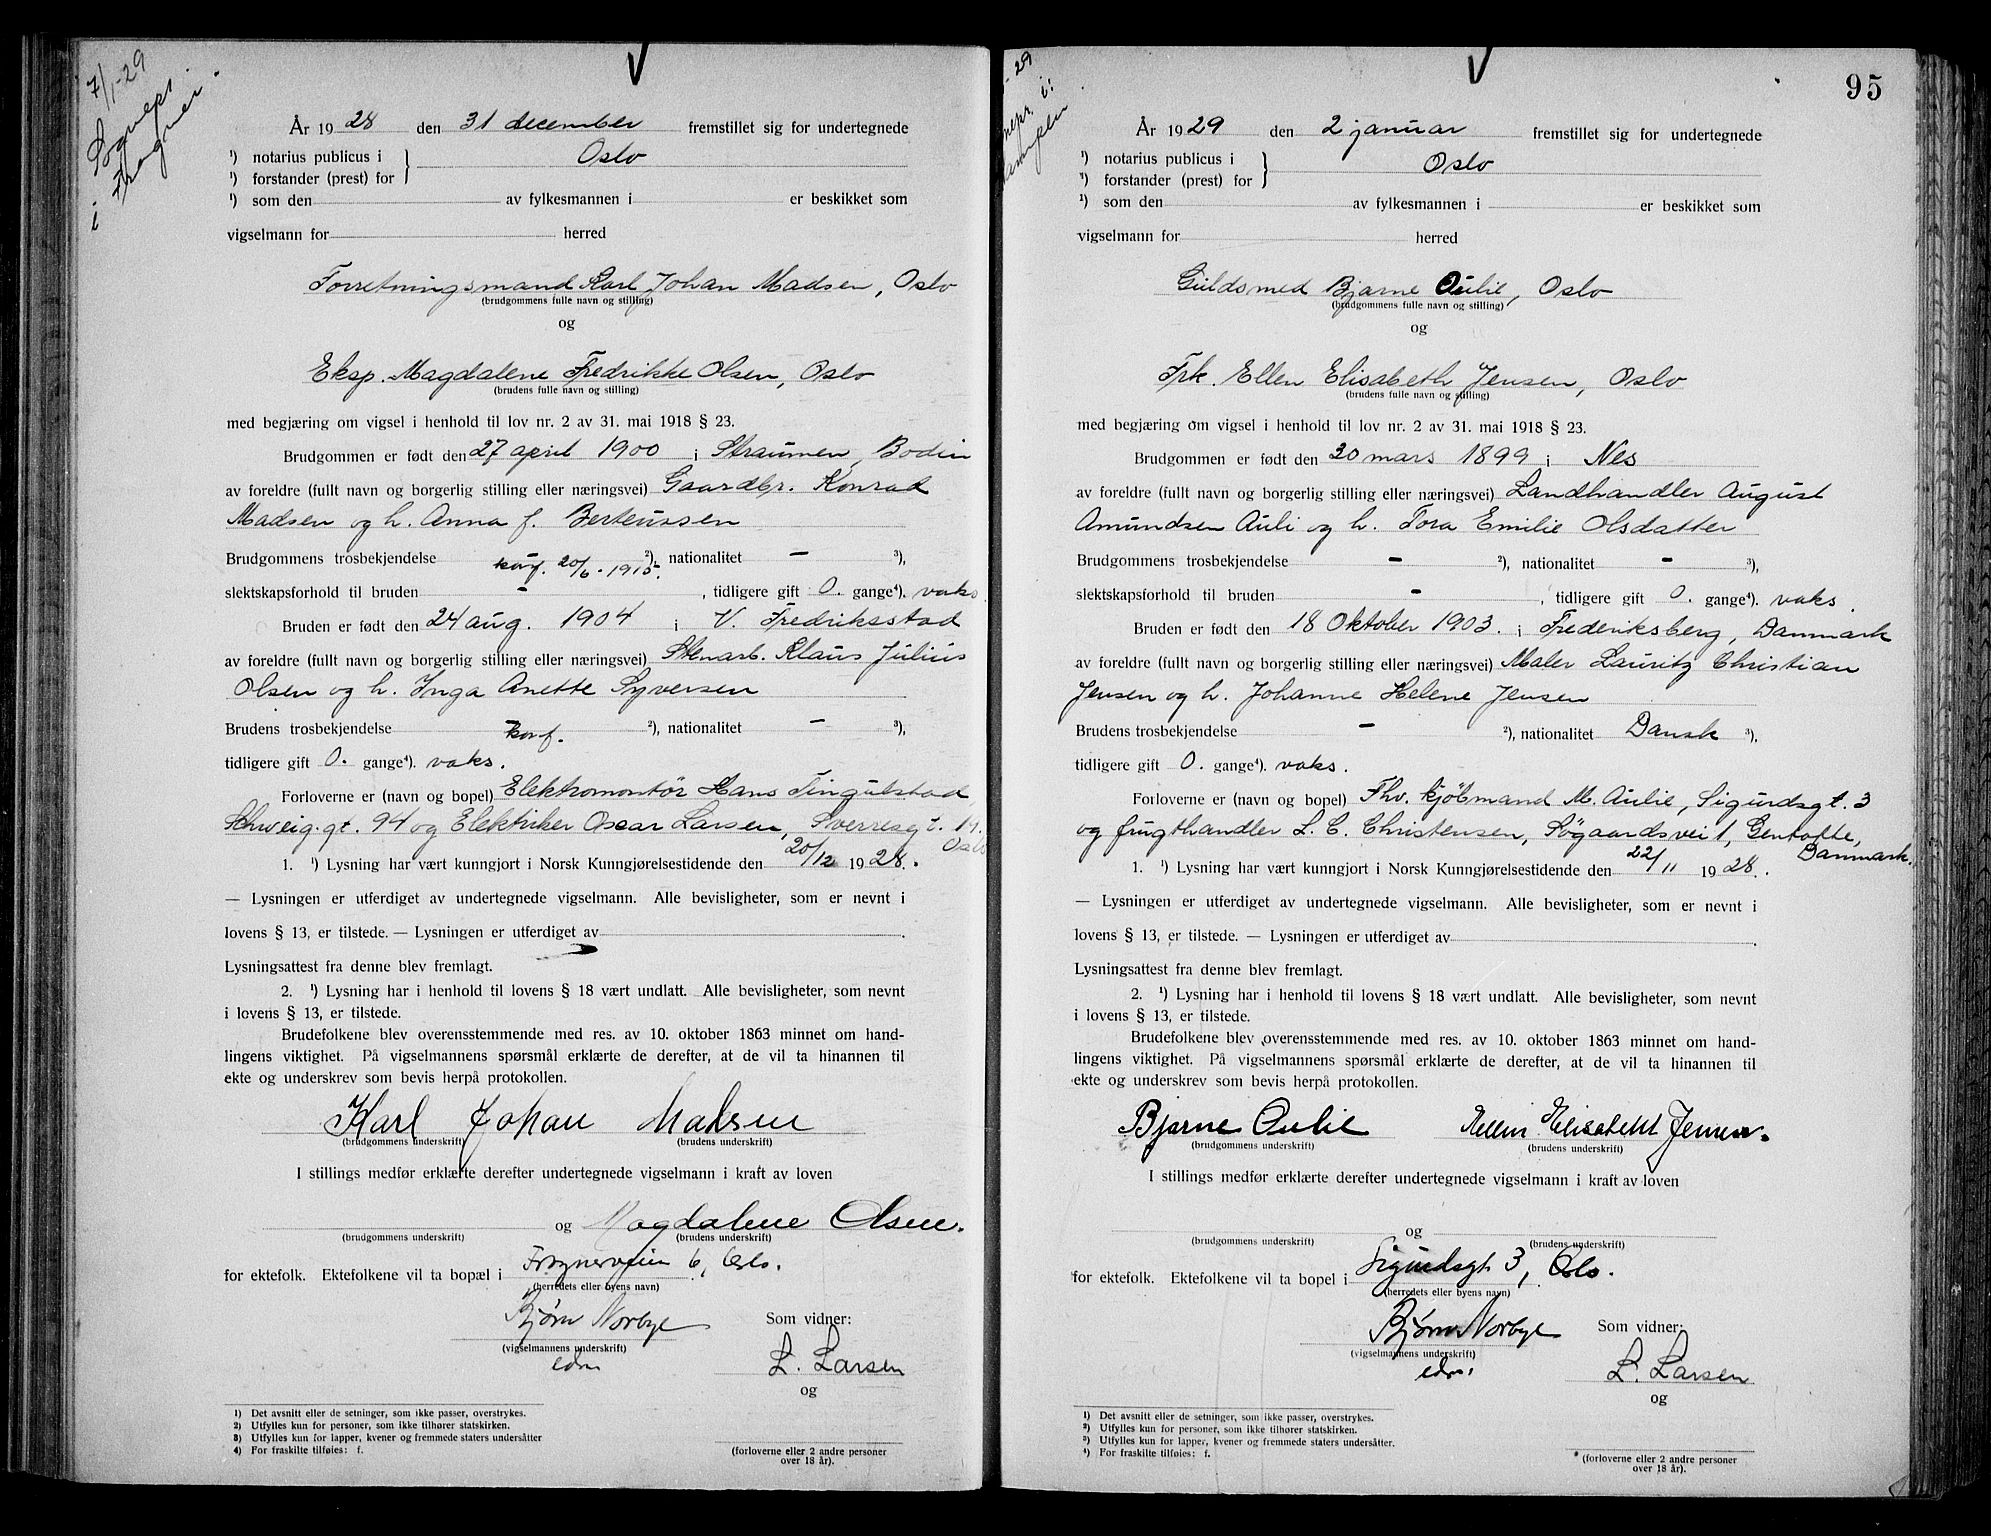 7/1-29
Sognepr.
i Frogner.
År 1928 den 31 december fremstillet sig for undertegnede
¹) notarius publicus i } Oslo
¹) forstander (prest) for
¹) som den av fylkesmannen i er beskikket som
vigselmann for herred
Forretningsmand Karl Johan Madsen, Oslo
(brudgommens fulle navn og stilling)
og
Eksp. Magdalene Fredrikke Olsen, Oslo
(brudens fulle navn og stilling)
med begjæring om vigsel i henhold til lov nr. 2 av 31. mai 1918 § 23.
Brudgommen er født den 27 april 1900 i Straumen, Bodin
av foreldre (fullt navn og borgerlig stilling eller næringsvei) Gaardbr. Konrad
Madsen og h. Anna f. Berteussen
Brudgommens trosbekjendelse konf. 20/6-1915. ²), nationalitet – ³),
slektskapsforhold til bruden -, tidligere gift 0. gange⁴). vaks.
Bruden er født den 24 aug. 1904 i V. Fredriksstad
av foreldre (fullt navn og borgerlig stilling eller næringsvei) Stenarb. Klaus Julius
Olsen og h. Inga Anette Syversen
Brudens trosbekjendelse konf. ²), nationalitet – ³),
tidligere gift 0. gange⁴). vaks.
Forloverne er (navn og bopel) Elektromontör Hans Tingulstad,
Schweig.gt. 94 og Elektriker Oscar Larsen, Sverresgt. 19.
Oslo
1. ¹) Lysning har vært kunngjort i Norsk Kunngjørelsestidende den 20/12 1928.
— Lysningen er utferdiget av undertegnede vigselmann. Alle bevisligheter, som er nevnt i
lovens § 13, er tilstede. — Lysningen er utferdiget av .
Lysningsattest fra denne blev fremlagt.
2. ¹) Lysning har i henhold til lovens § 18 vært undlatt. Alle bevisligheter, som nevnt
i lovens § 13, er tilstede.
Brudefolkene blev overensstemmende med res. av 10. oktober 1863 minnet om hand-
lingens viktighet. På vigselmannens spørsmål erklærte de derefter, at de vil ta hinannen til
ekte og underskrev som bevis herpå protokollen.
Karl Johan Madsen
(brudgommens underskrift) (brudens underskrift)
I stillings medfør erklærte derefter undertegnede vigselmann i kraft av loven
og Magdalene Olsen.
(brudgommens underskrift) (brudens underskrift)
for ektefolk. Ektefolkene vil ta bopæl i Frognerveien 6, Oslo.
(herredets eller byens navn)
Bjørn Norbye Som vidner:
(vigselmannens underskrift)
edm L. Larsen
og
1) Det avsnitt eller de setninger, som ikke passer, overstrykes.
2) Utfylles kun for personer, som ikke tilhører statskirken.
3) Utfylles kun for lapper, kvener og fremmede staters undersåtter
4) For fraskilte tilføies: f.
(forloverne eller 2 andre personer
over 18 år).
95
29
nepr. i:
År 1929 den 2 januar fremstillet sig for undertegnede
¹) notarius publicus i } Oslo
¹) forstander (prest) for
¹) som den av fylkesmannen i er beskikket som
vigselmann for herred
Guldsmed Bjarne Aulie, Oslo
(brudgommens fulle navn og stilling)
og
Frk. Ellen Elisabeth Jensen, Oslo
(brudens fulle navn og stilling)
med begjæring om vigsel i henhold til lov nr. 2 av 31. mai 1918 § 23.
Brudgommen er født den 20 mars 1899 i Nes
av foreldre (fullt navn og borgerlig stilling eller næringsvei) Landhandler August
Amundsen Auli og h. Tora Emilie Olsdatter
Brudgommens trosbekjendelse - ²), nationalitet - ³),
slektskapsforhold til bruden -, tidligere gift 0. gange⁴). vaks.
Bruden er født den 18 Oktober 1903. i Frederiksberg, Danmark
av foreldre (fullt navn og borgerlig stilling eller næringsvei) Maler Lauritz Christian
Jensen og h. Johanne Helene Jensen
Brudens trosbekjendelse - ²), nationalitet Dansk ³).
tidligere gift 0. gange⁴). vaks.
Forloverne er (navn og bopel) Fhv. kjöbmand M. Aulie, Sigurdsgt. 3
og frugthandler L. C. Christensen, Søgaardsvei 1, Gentofte,
Danmark.
1. ¹) Lysning har vært kunngjort i Norsk Kunngjørelsestidende den 22/11 1928.
— Lysningen er utferdiget av undertegnede vigselmann. Alle bevisligheter, som er nevnt i
lovens § 13, er tilstede. — Lysningen er utferdiget av .
Lysningsattest fra denne blev fremlagt.
2. ¹) Lysning har i henhold til lovens § 18 vært undlatt. Alle bevisligheter, som nevnt
i lovens § 13, er tilstede.
Brudefolkene blev overensstemmende med res. av 10. oktober 1863 minnet om hand-
lingens viktighet. På vigselmannens spørsmål erklærte de derefter, at de vil ta hinannen til
ekte og underskrev som bevis herpå protokollen.
Bjarne Aulie Ellen Elisabeth Jensen.
(brudgommens underskrift) (brudens underskrift)
I stillings medfør erklærte derefter undertegnede vigselmann i kraft av loven
og
(brudgommens underskrift) (brudens underskrift)
for ektefolk. Ektefolkene vil ta bopel i Sigurdsgt 3, Oslo.
(herredets eller byens navn)
Bjørn Norbye Som vidner:
(vigselmannens underskrift)
edm. L. Larsen
og
¹) Det avsnitt eller de setninger, som ikke passer, overstrykes.
²) Utfylles kun for personer, som ikke tilhører statskirken.
³) Utfylles kun for lapper, kvener og fremmede staters undersåtter.
⁴) For fraskilte tilføies: f.
(forloverne eller 2 andre personer
over 18 år).